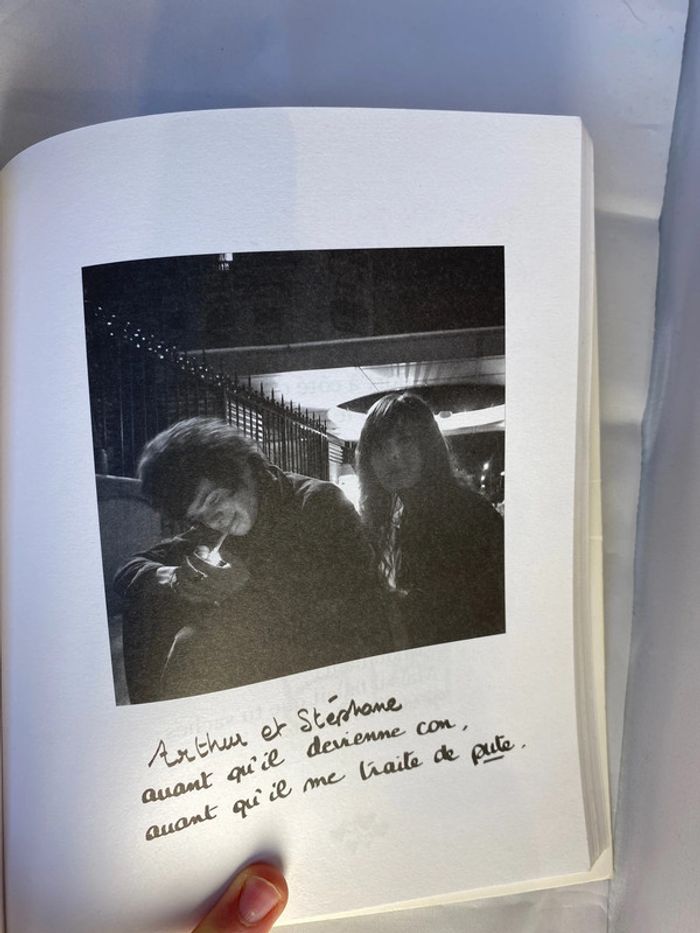 Arthur et Stéphane
avant qu'il devienne con,
avant qu'il me traite de pute.